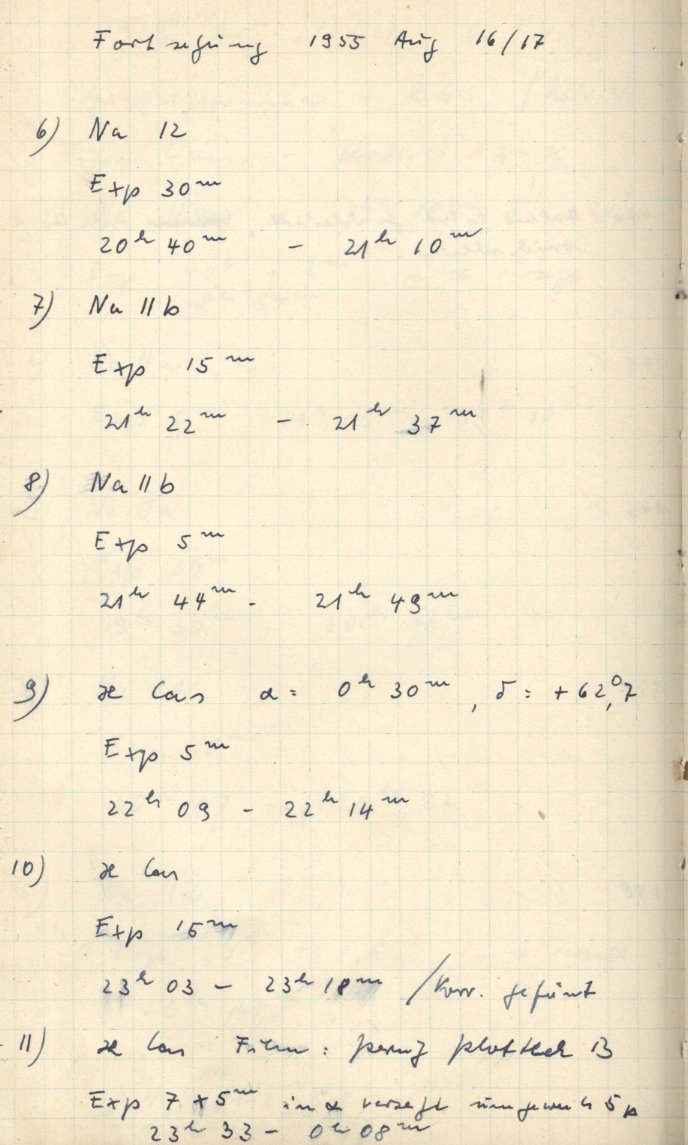 Fortsetzung 1955 Aug 16/17
6) Na 12
Exp 30ᵐ
20ʰ 40ᵐ - 21ʰ 10ᵐ
7) Na 11b
Exp 15ᵐ
21ʰ 22ᵐ - 21ʰ 37ᵐ
8) Na 11b
Exp 5ᵐ
21ʰ 44ᵐ - 21ʰ 49ᵐ
9) ϰ Cas α = 0ʰ 30ᵐ, δ = +62,°7
Exp 5ᵐ
22ʰ 09 - 22ʰ 14ᵐ
10) ϰ Cas
Exp 15ᵐ
23ʰ 03 - 23ʰ 18ᵐ /Korr. geführt
11) ϰ Cas Film: Perutz B
Exp 7 × 5ᵐ in α versetzt
23ʰ 33 - 0ʰ 08ᵐ